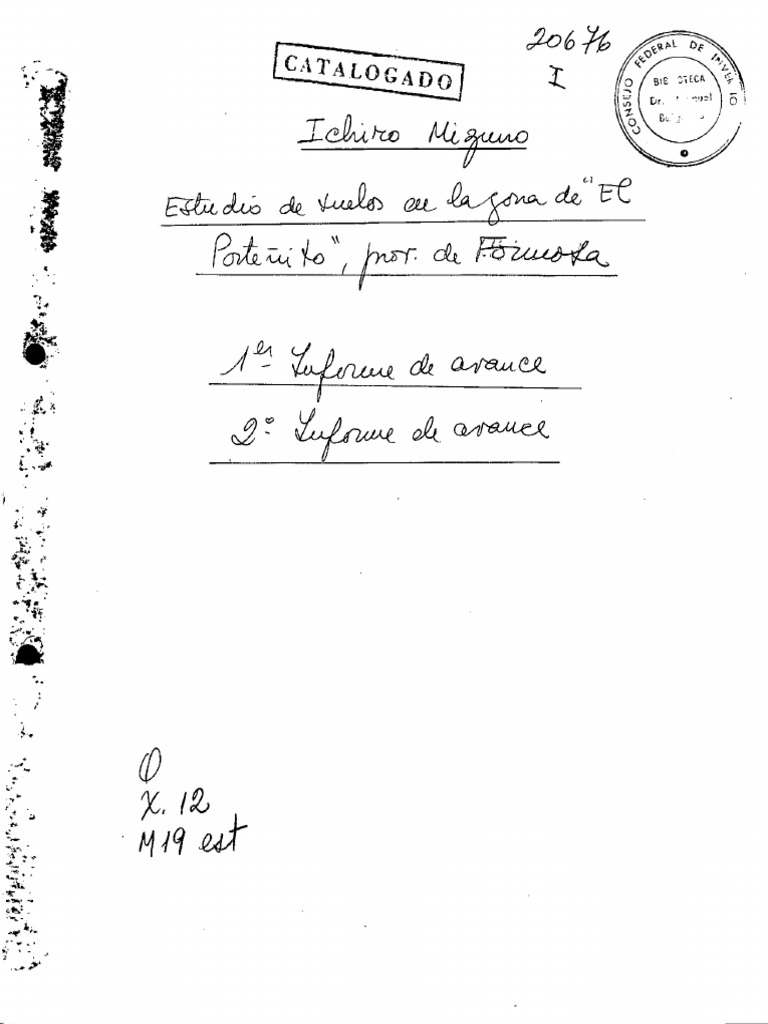 20676
I
CATALOGADO
CONSEJO FEDERAL DE INVER IO
BIB OTECA
Dr.
Ichiro Mizuno
Estudio de suelos en la zona de "El
Porteñito", prov. de Formosa
1er Informe de avance
2º Informe de avance
O
X. 12
M19 est